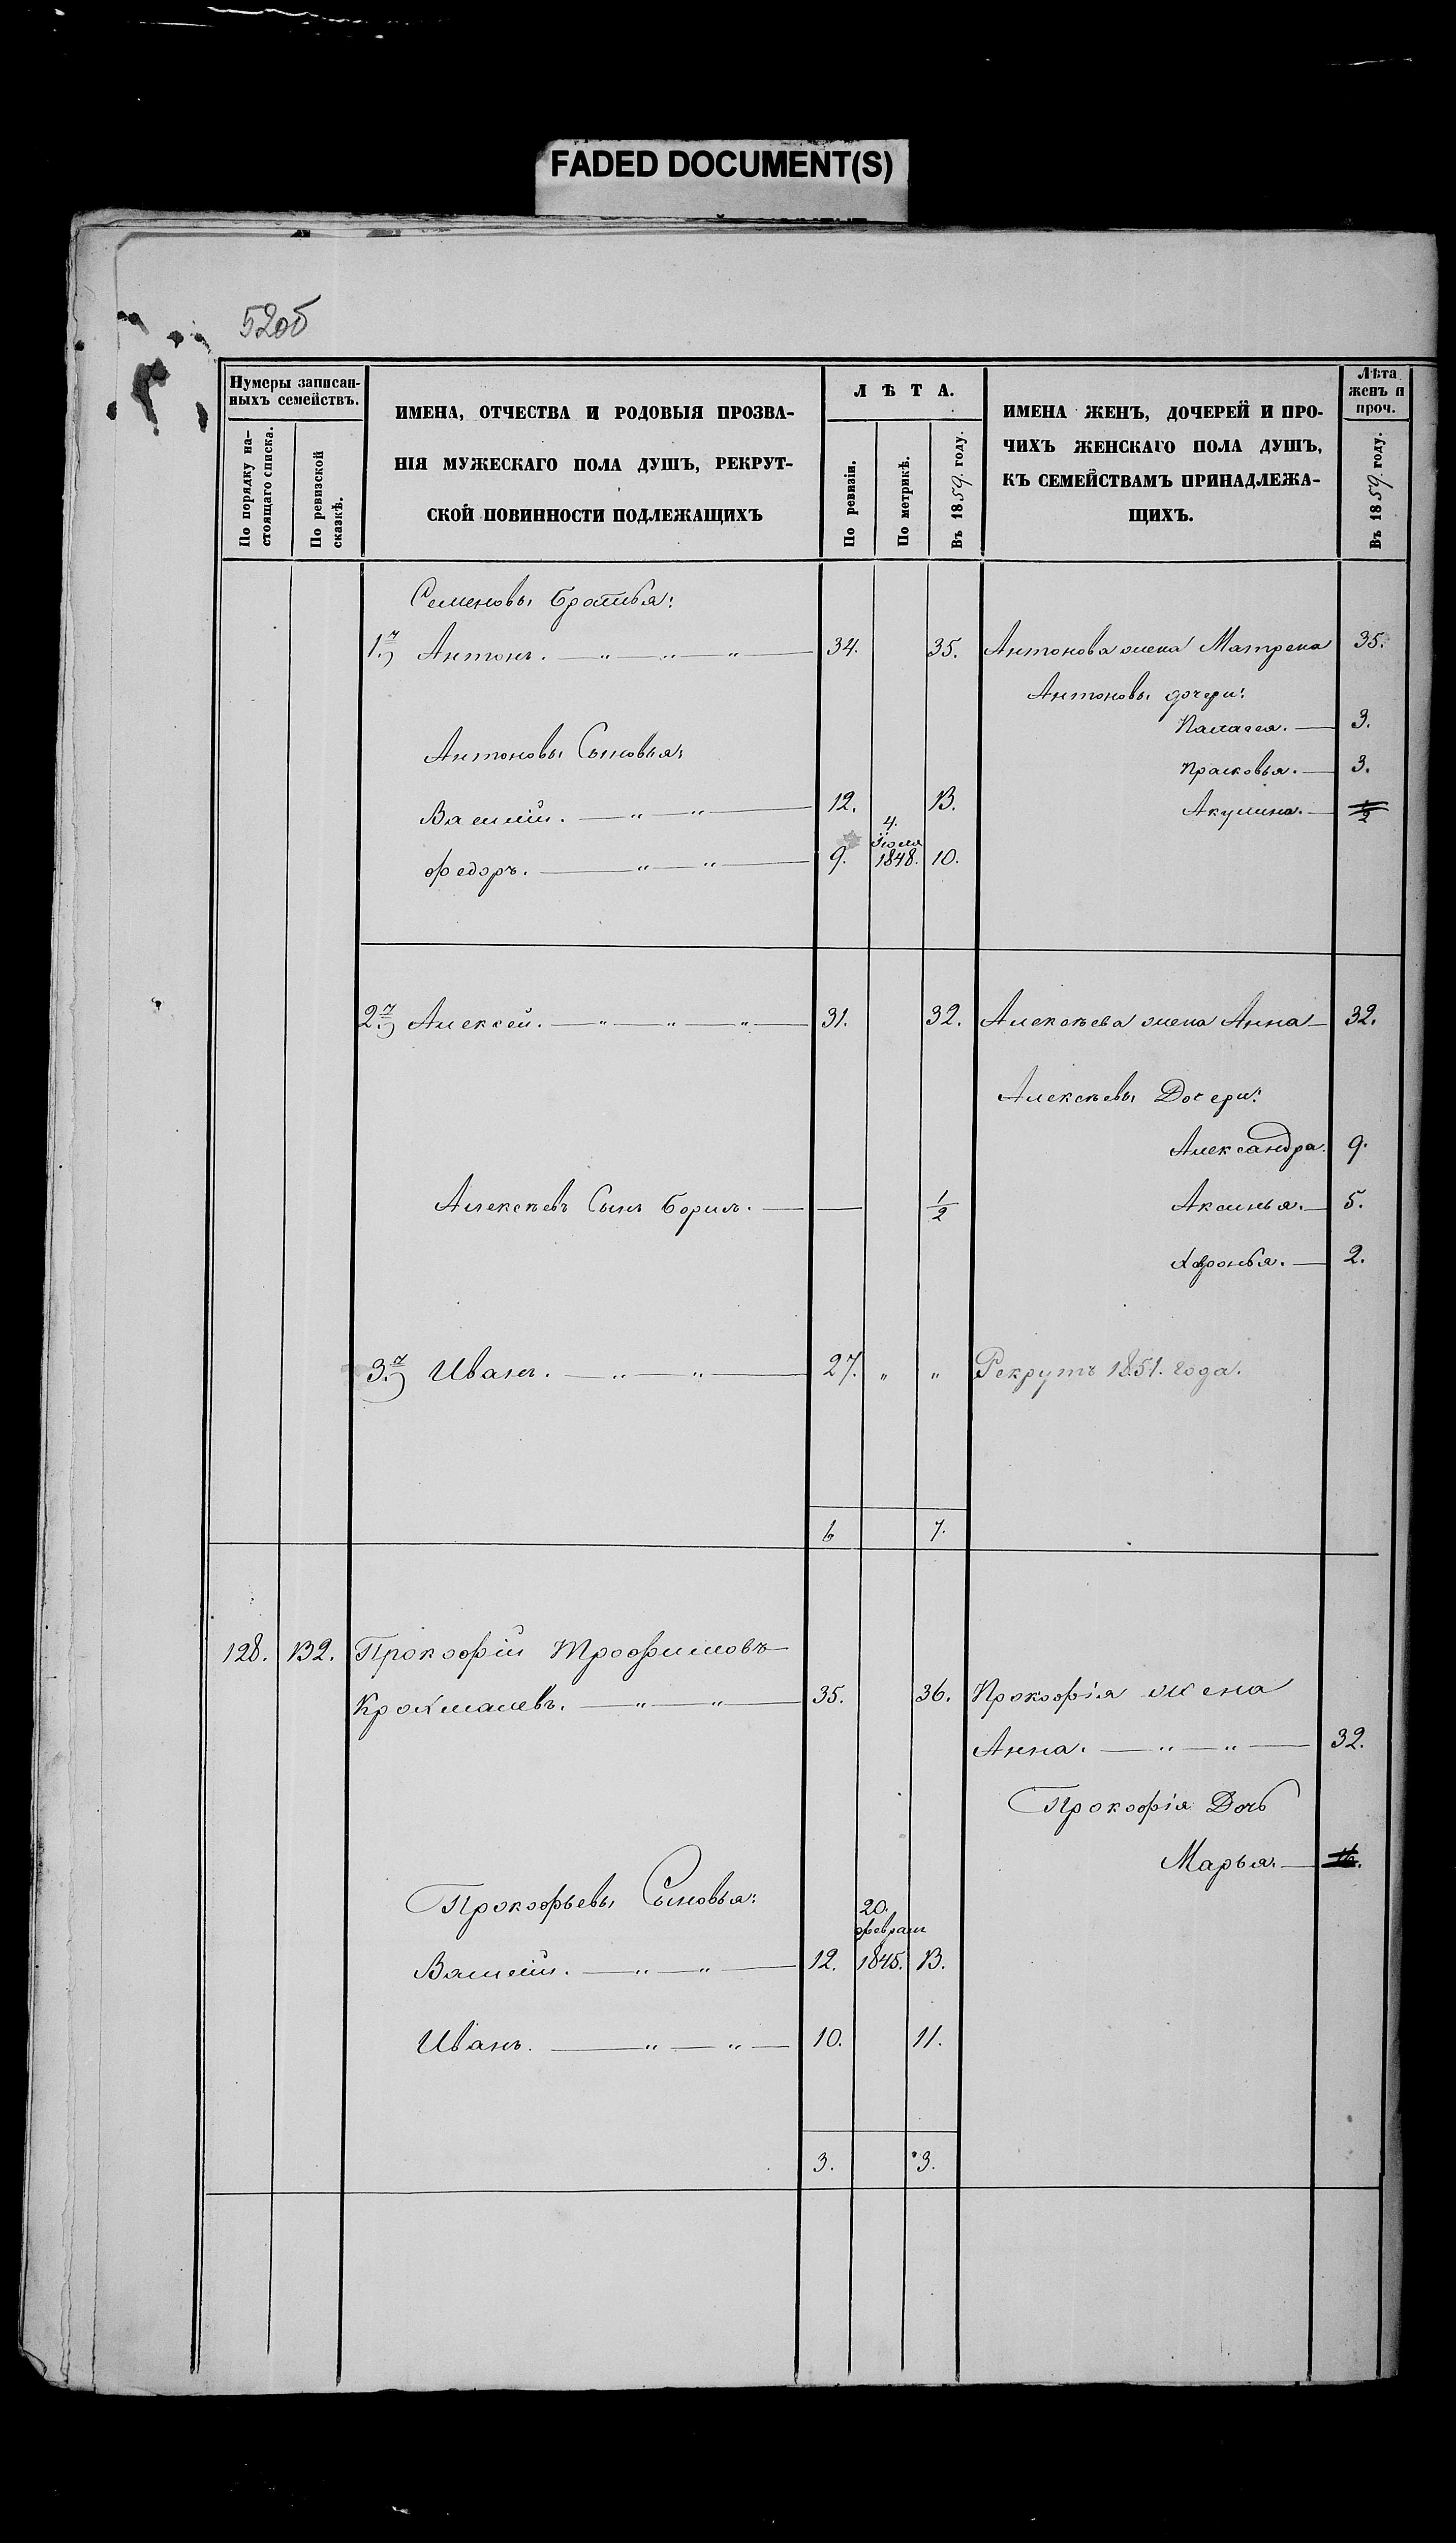 FADED DOCUMENT(S)
52об
Нумеры записан-
ныхъ семействъ.
По порядку на-
стоящаго списка.
По ревизской
сказкѣ.
ИМЕНА, ОТЧЕСТВА И РОДОВЫЯ ПРОЗВА-
НІЯ МУЖЕСКАГО ПОЛА ДУШЪ, РЕКРУТ-
СКОЙ ПОВИННОСТИ ПОДЛЕЖАЩИХЪ
ЛѢТА.
По ревизіи.
По метрикѣ.
Въ 1859. году.
ИМЕНА ЖЕНЪ, ДОЧЕРЕЙ И ПРО-
ЧИХЪ ЖЕНСКАГО ПОЛА ДУШЪ,
КЪ СЕМЕЙСТВАМЪ ПРИНАДЛЕЖА-
ЩИХЪ.
Лѣта
женъ и
проч.
Въ 1859. году.
Семеновы братья:
1.й Антонъ. — „ — „ — „ — 34. 35. Антонова жена Матрена 35.
Антоновы дочери:
Палагея. — 3.
Антоновы Сыновья:
Прасковья. — 3.
Василій. — „ — „ — 12. 13. Акулина. — 1/2
4.
Іюля
Федоръ. — „ — „ — 9. 1848. 10.
2.й Алексей. — „ — „ — „ — 31. 32. Алексѣева жена Анна — 32.
Алексѣевы Дочери:
Александра. 9.
Алексѣевъ Сынъ Борисъ. — — 1/2 Аксинья. — 5.
Афронья. — 2.
3.й Иванъ. — „ — „ — 27. „ „ Рекрутъ 1851. года.
6 7.
128. 132. Прокофій Трофимовъ
Крохмалевъ. — „ — „ — 35. 36. Прокофія жена
Анна. — „ — „ — 32.
Прокофія Дочь
Марья. —
Прокофьевы Сыновья:
20.
февраля
Василій. — „ — „ — 12. 1845. 13.
Иванъ. — „ — „ — 10. 11.
3. 3.